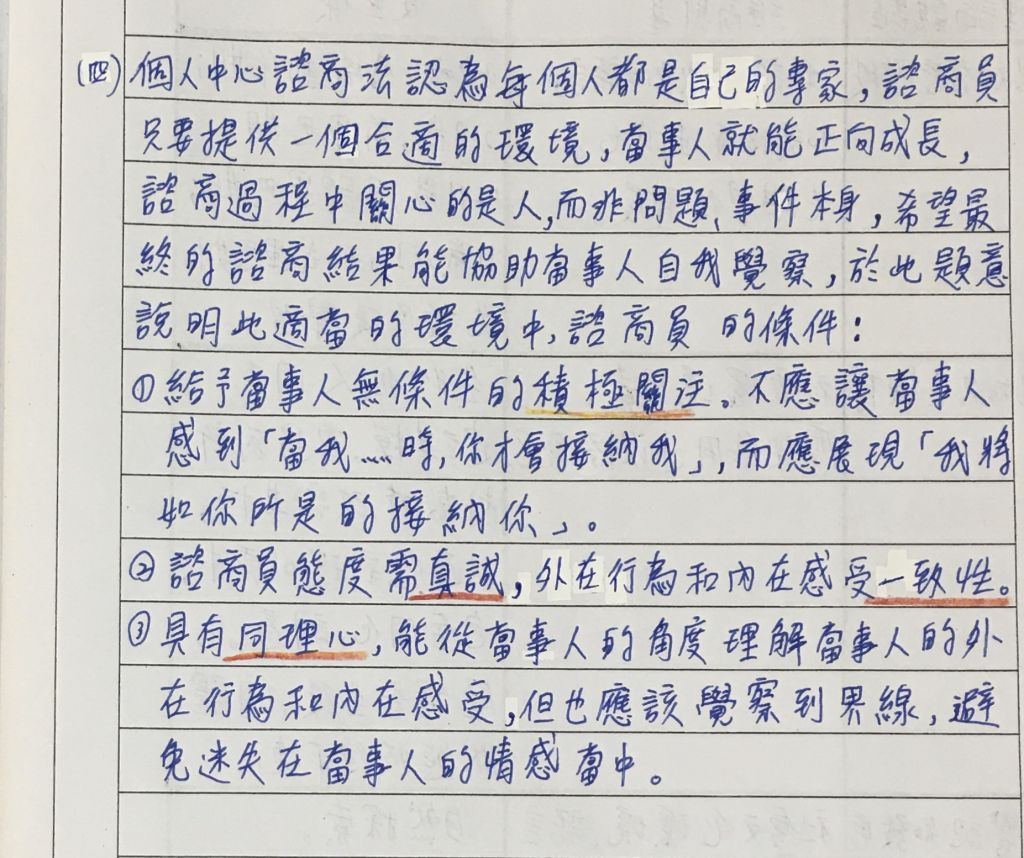 (四)個人中心諮商法認為每個人都是自己的專家,諮商員
只要提供一個合適的環境,當事人就能正向成長,
諮商過程中關心的是人,而非問題、事件本身,希望最
終的諮商結果能協助當事人自我覺察,於此題意
說明此適當的環境中,諮商員的條件:
①給予當事人無條件的積極關注。不應讓當事人
感到「當我……時,你才會接納我」,而應展現「我將
如你所是的接納你」。
②諮商員態度需真誠,外在行為和內在感受一致性。
③具有同理心,能從當事人的角度理解當事人的外
在行為和內在感受,但也應該覺察到界線,避
免迷失在當事人的情感當中。